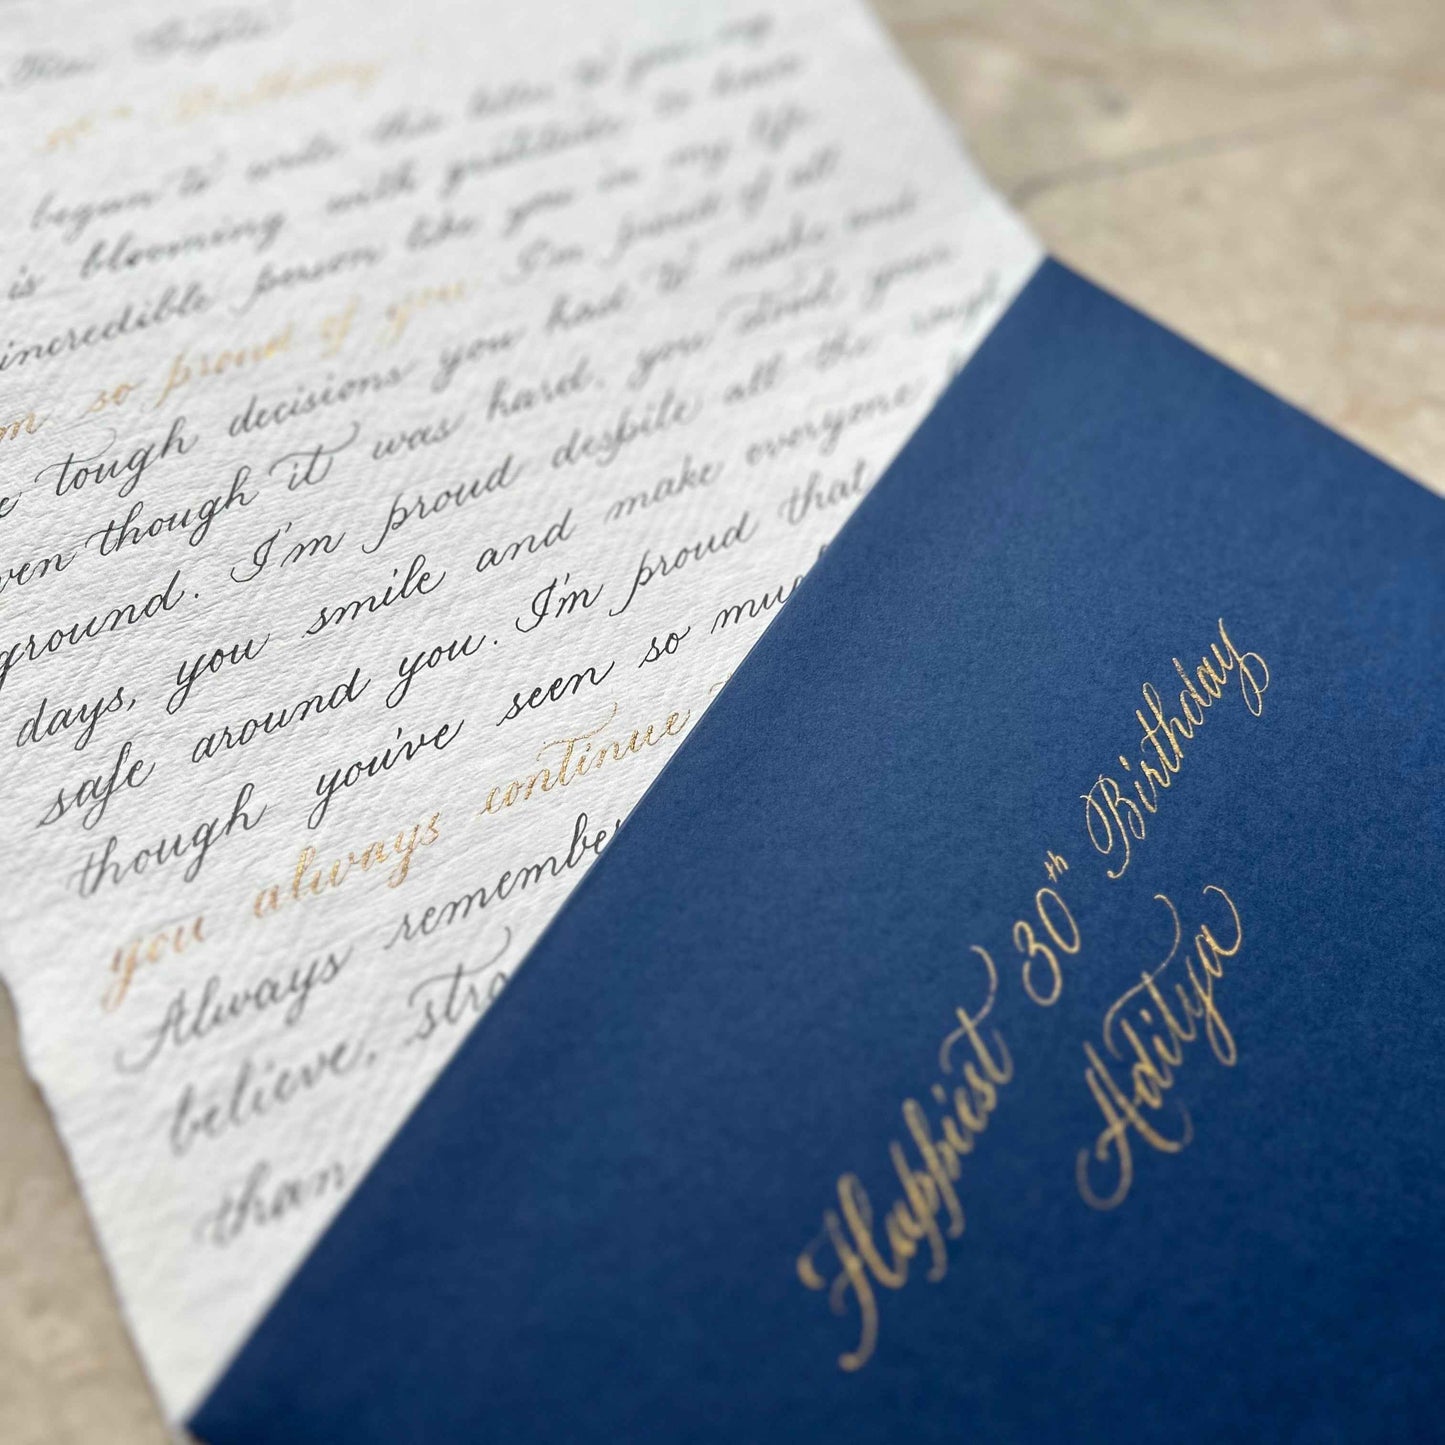 Birthday
began to write this letter to you, my
is blooming with gratitude to have
incredible person like you in my life.
so proud of you I'm proud of all
tough decisions you had to make and
even though it was hard, you stood your
ground. I'm proud despite all the rough
days, you smile and make everyone
safe around you. I'm proud that
though you've seen so much
you always continue
Always remember
believe,
than
Happiest 30th Birthday
Aditya